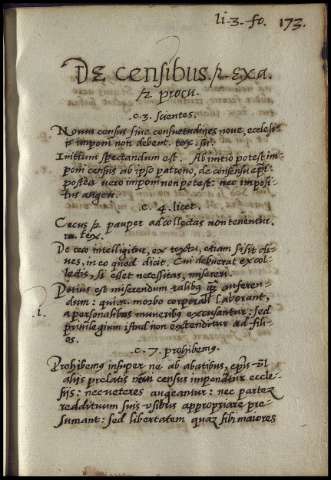 li. 3. fo. 173.
DE censibus. &. exa.
&. procu.
.c. 3. scientes.
Nouus census siue consuetudines noue, ecclesijs
imponi non debent. tex. ibi.
Initium spectandum est. Ab initio potest im
poni census ab ipso patrono, de consensu epi
postea uero imponi non potest: nec imposi
tus augeri.
.c. 4. licet.
Cecus &. pauper ad collectas non tenentur.
tex.
De ceo intelligitur, ex textu, etiam si sit di
ues, in eo quod dicit. Cui debuerat ex col
lectis, si esset necessitas, misereri.
Potius est miserendum talibus quam auferen
dum: qui a morbo corporali laborant,
i. a personalibus muneribus excusantur: sed
priuilegium istud non extenditur ad fili
os.
.c. 7. prohibemus.
Prohibemus insuper ne ab abatibus, epis ul
alijs prelatis noui census imponantur eccle
sijs: nec ueteres augeantur: nec partem
reddituum suis usibus appropriare pre
sumant: sed libertatem quas sibi maiores